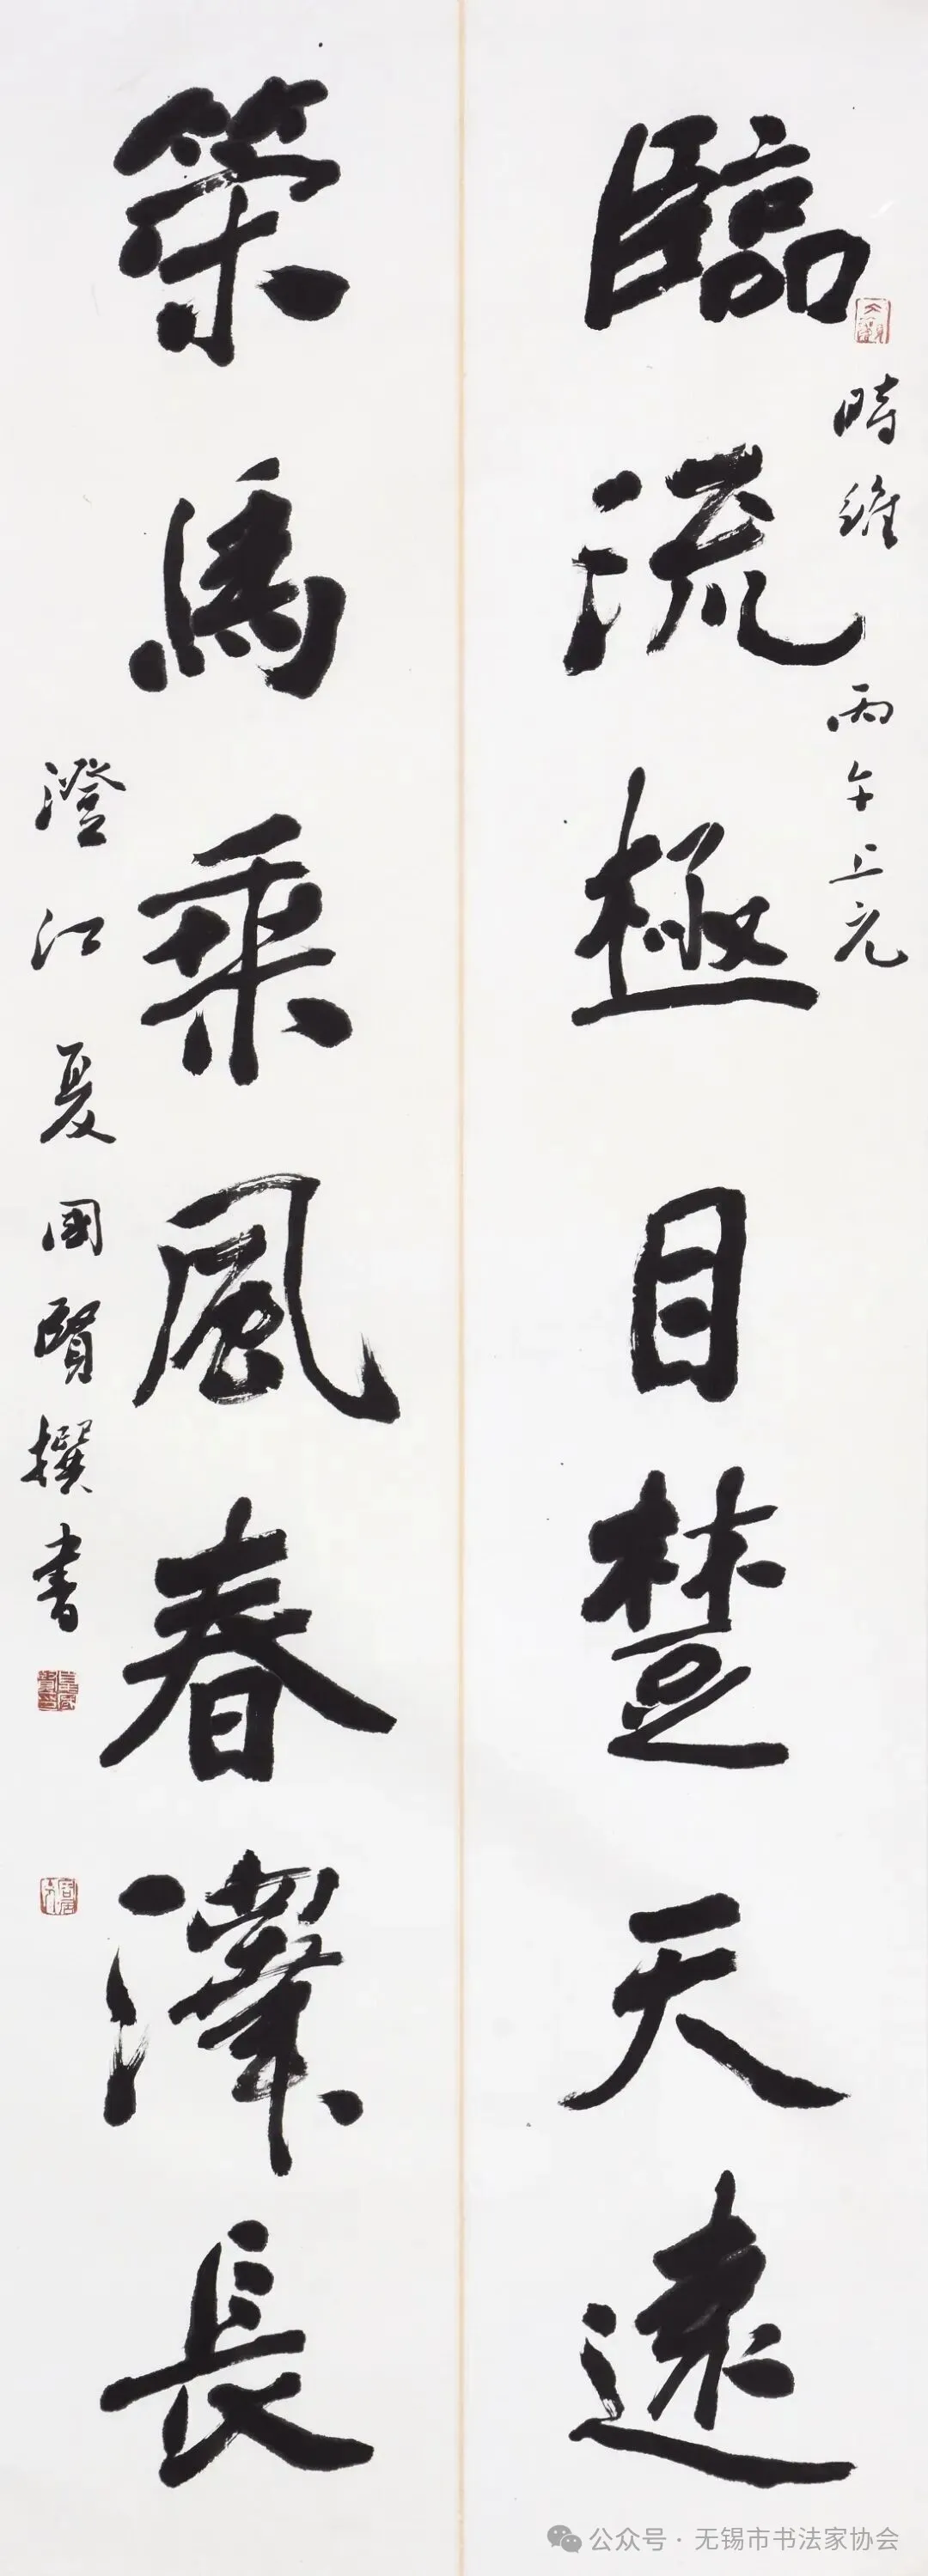 臨流極目楚天遠
時維丙午上元
策馬乘風春澤長
澄江夏國賢撰書
公众号 · 无锡市书法家协会